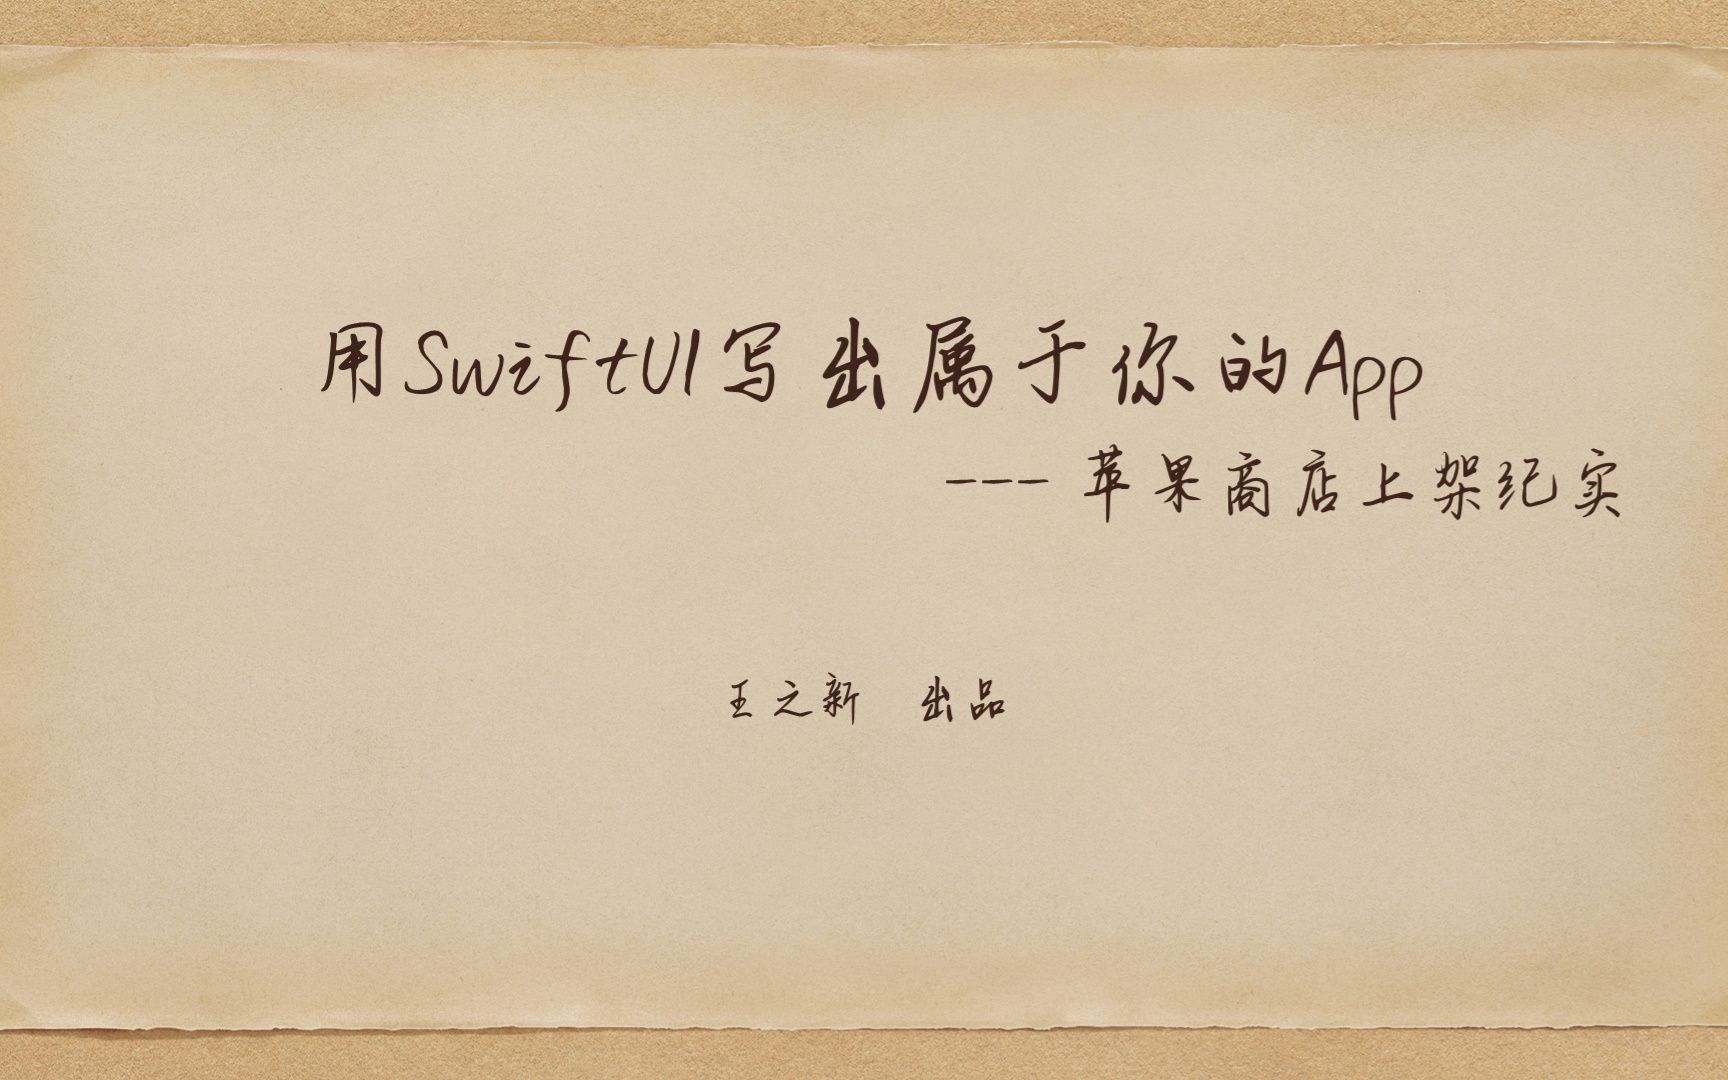 用SwiftUI写出属于你的App
--- 苹果商店上架纪实
王之新 出品